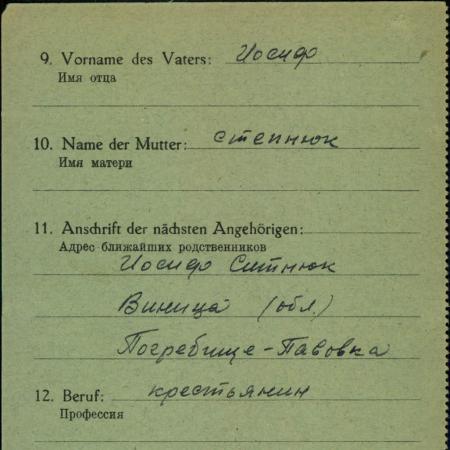 9. Vorname des Vaters: Иосиф
Имя отца
10. Name der Mutter: Степнюк
Имя матери
11. Anschrift der nächsten Angehörigen:
Адрес ближайших родственников
Иосиф Ситнюк
Виница (обл.)
Погребище-Павовка
12. Beruf: крестьянин
Профессия